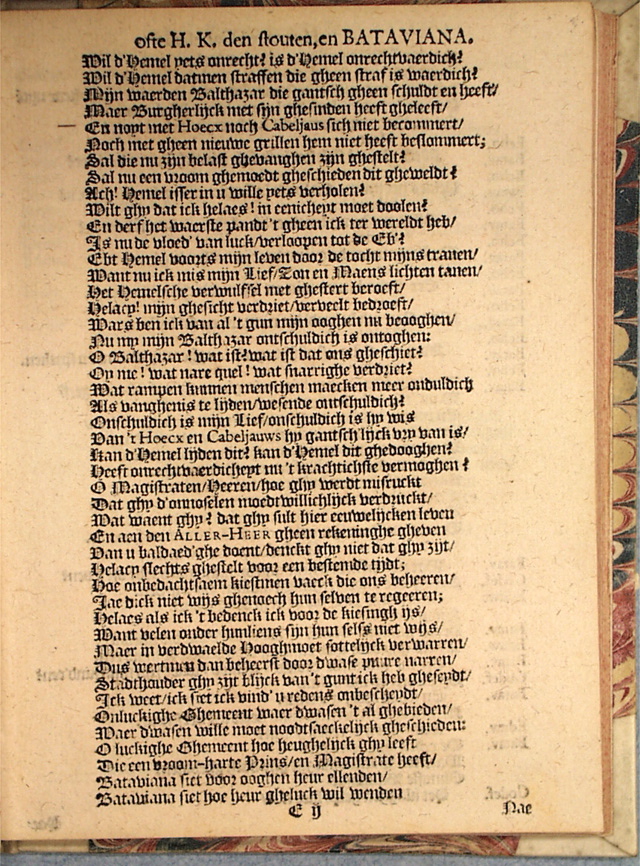 ofte H. K. den stouten, en BATAVIANA.
Wil d'Hemel yets onrecht? is d'Hemel onrechtvaerdich?
Wil d'Hemel datmen straffen die gheen straf is waerdich?
Mijn waerden Balthazar die gantsch gheen schuldt en heeft/
Maer Burgherlijck met sijn ghesinden heeft gheleeft/
En noyt met Hoecx noch Cabeljaus sich niet becommert/
Noch met gheen nieuwe grillen hem niet heeft beslommert;
Sal die nu zijn belast ghevanghen zijn ghestelt?
Sal nu een vroom ghemoedt gheschieden dit gheweldt?
Ach! Hemel isser in u wille yets verholen?
Wilt ghy dat ick helaes! in eenicheyt moet doolen?
En derf het waerste pandt 't gheen ick ter wereldt heb/
Is nu de vloed' van luck/verloopen tot de Eb'?
Ebt Hemel voorts mijn leven door de tocht mijns tranen/
Want nu ick mis mijn Lief/Son en Maens lichten tanen/
Het Hemelsche verwulfsel met ghestert berooft/
Helacy! mijn ghesicht verdriet/verveelt bedroeft/
Wars ben ick van al 't gun mijn ooghen nu beooghen/
Nu my mijn Balthazar ontschuldich is ontoghen:
O Balthazar! wat ist? wat ist dat ons gheschiet?
Oy me! wat nare quel! wat snarrighe verdriet?
Wat rampen kunnen menschen maecken meer onduldich
Als vanghenis te lijden/wesende ontschuldich?
Onschuldich is mijn Lief/onschuldich is hy wis
Van 't Hoecx en Cabeljauws hy gantsch'lijck vry van is/
Kan d'Hemel lijden dit? kan d'Hemel dit ghedooghen?
Heeft onrechtvaerdicheyt nu 't krachtichste vermoghen?
O Magistraten/Heeren/hoe ghy werdt misruckt
Dat ghy d'onnoselen moedtwillichlijck verdruckt/
Wat waent ghy? dat ghy sult hier eeuwelijcken leven
En aen den ALLER-HEER gheen rekeninghe gheven
Van u baldaed'ghe doent/denckt ghy niet dat ghy zijt/
Helacy slechts ghestelt voor een bestemde tijdt;
Hoe onbedachtsaem kiestmen vaeck die ons beheeren/
Jae dick niet wijs ghenoech hun selven te regeeren;
Helaes als ick 't bedenck ick voor de kiesingh ijs/
Want velen onder hunliens sijn hun selfs niet wijs/
Maer in verdwaelde Hooghmoet sottelijck verwarren/
Dus wertmen dan beheerst door dwase puure narren/
Stadthouder ghy zijt blijck van 't gunt ick heb gheseydt/
Ick weet/ick siet ick vind' u redens onbescheydt/
Onluckighe Ghemeent waer dwasen 't al ghebieden/
Waer d'wasen wille moet noodtsaeckelijck gheschieden:
O luckighe Ghemeent hoe heughelijck ghy leeft
Die een vroom-harte Prins/en Magistrate heeft/
Bataviana siet voor ooghen heur ellenden/
Bataviana siet hoe heur gheluck wil wenden
E ij
Nae